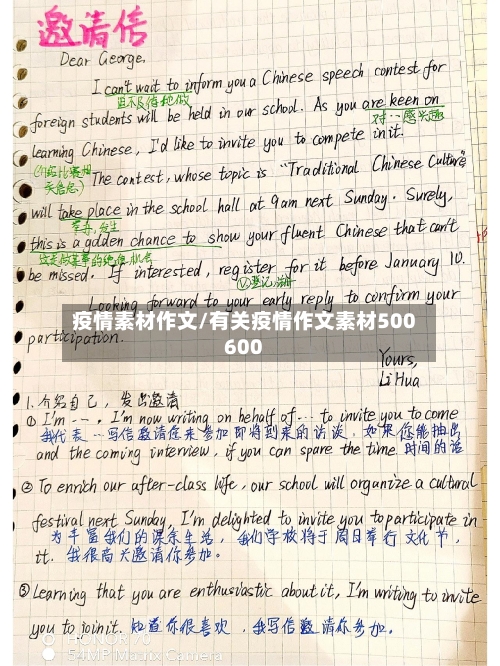 邀请信
Dear George,
I can't wait to inform you a Chinese speech contest for
迫不及待地做
foreign students will be held in our school. As you are keen on
对…感兴趣
learning Chinese, I'd like to invite you to compete in it.
The contest, whose topic is "Traditional Chinese Culture",
will take place in the school hall at 9am next Sunday. Surely,
举办,发生
this is a golden chance to show your fluent Chinese that can't
这是做某事的绝佳机会
be missed. If interested, register for it before January 10.
Looking forward to your early reply to confirm your
疫情素材作文/有关疫情作文素材500
600
participation.
Yours,
Li Hua
1. 介绍自己,发出邀请
① I'm ---. I'm now writing on behalf of ... to invite you to come
我代表…写信邀请您来参加即将到来的访谈,如果您能抽出
and the coming interview, if you can spare the time 时间的话
② To enrich our after-class life, our school will organize a cultural
festival next Sunday, I'm delighted to invite you to participate in
为丰富我们的课余生活,我们学校将于周日举行文化节,
it. 我很高兴邀请你参加。
③ Learning that you are enthusiastic about it, I'm writing to invite
you to join it. 知道你很喜欢,我写信邀请你参加。
HONOR
54MP Matrix Camera